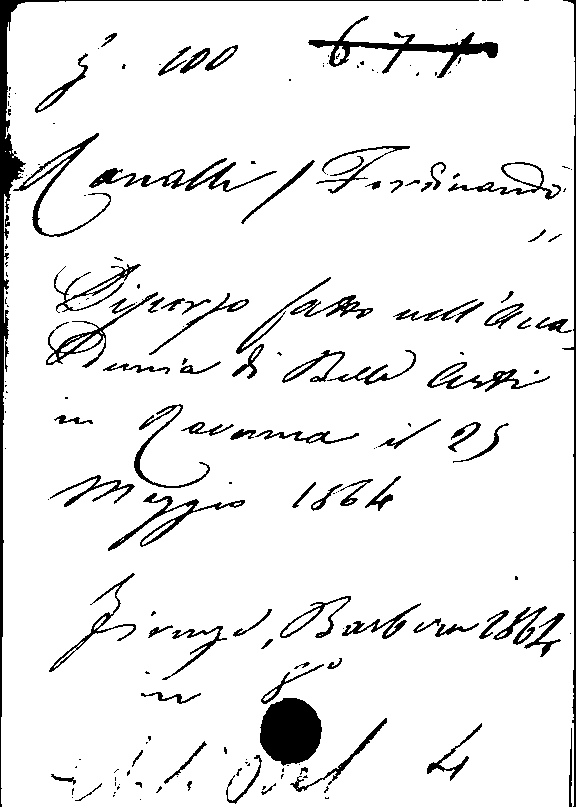 z. 100 6.7.1
Ranalli / Ferdinando
"
Discorso fatto nell'Acca
demia di Belle Arti
in Ravenna il 25
Maggio 1864
Firenze, Barbera 1864
in 8°
4